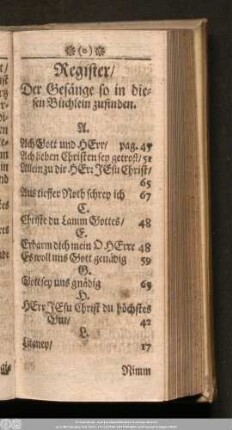 ❋(o)❋
Register/
Der Gesänge so in die-
sen Büchlein zufinden.
A.
Ach Gott und HErr/ pag. 45
Ach lieben Christen sey getrost/ 51
Allein zu dir HErr JEsu Christ/
65
Aus tieffer Noth schrey ich 67
C.
Christe du Lamm Gottes/ 48
E.
Erbarm dich mein O HErre 48
Es woll uns Gott genädig 59
G.
Gott sey uns gnädig 63
H.
HErr JEsu Christ du höchstes
Gut/ 42
L.
Litaney/ 17
Nimm